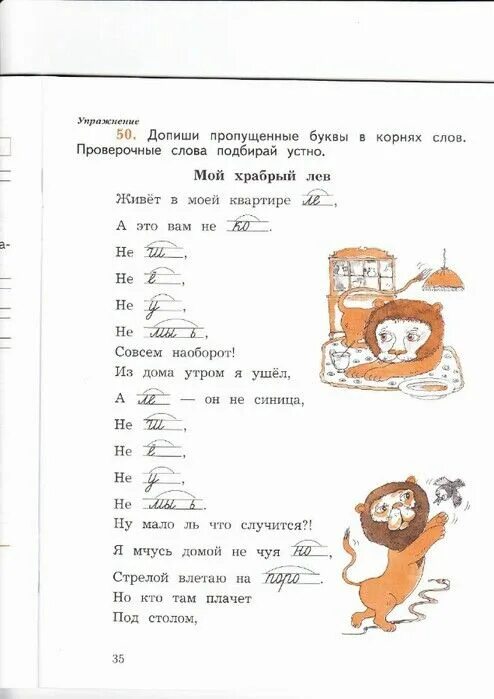 Упражнение
50. Допиши пропущенные буквы в корнях слов.
Проверочные слова подбирай устно.
Мой храбрый лев
Живёт в моей квартире ле_,
А это вам не ко_.
а-
Не ш_,
Не ё_,
Не у_,
Не мы_ь,
Совсем наоборот!
Из дома утром я ушёл,
А ле_ — он не синица,
Не ш_,
Не ё_,
Не у_,
Не мы_ь.
Ну мало ль что случится?!
Я мчусь домой не чуя но_,
Стрелой влетаю на поро_.
Но кто там плачет
Под столом,
35